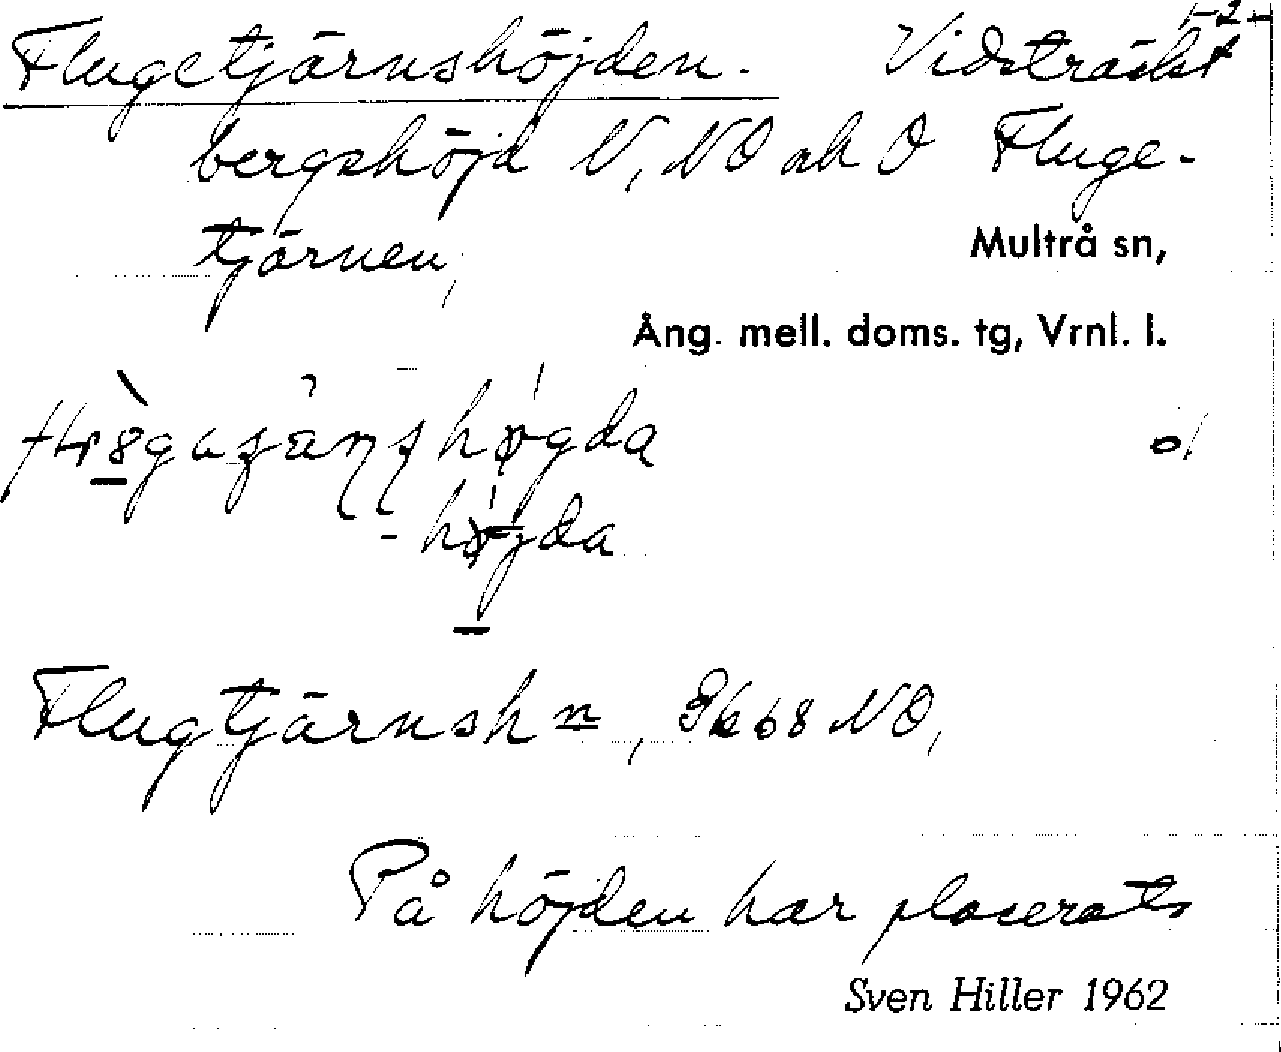 1-2-
Flugetjärnshöjden. Vidsträckt
bergshöjd N, NO ah O Fluge-
tjärnen,
Multrå sn,
Ång. mell. doms. tg, Vrnl. l.
Flugtjärnshn, Gk 68 NO,
På höjden har placerats
Sven Hiller 1962